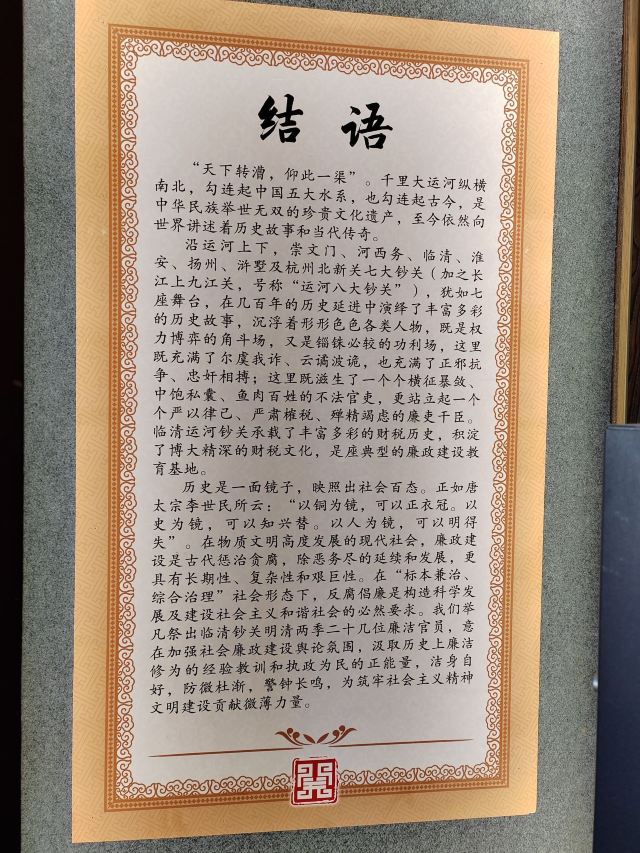 结 语
“天下转漕，仰此一渠”。千里大运河纵横
南北，勾连起中国五大水系，也勾连起古今，是
中华民族举世无双的珍贵文化遗产，至今依然向
世界讲述着历史故事和当代传奇。
沿运河上下，崇文门、河西务、临清、淮
安、扬州、浒墅及杭州北新关七大钞关（加之长
江上九江关，号称“运河八大钞关”），犹如七
座舞台，在几百年的历史延进中演绎了丰富多彩
的历史故事，沉浮着形形色色各类人物，既是权
力博弈的角斗场，又是锱铢必较的功利场，这里
既充满了尔虞我诈、云谲波诡，也充满了正邪抗
争、忠奸相搏；这里既滋生了一个个横征暴敛、
中饱私囊、鱼肉百姓的不法官吏，更站立起一个
个严以律己、严肃榷税、殚精竭虑的廉吏干臣。
临清运河钞关承载了丰富多彩的财税历史，积淀
了博大精深的财税文化，是座典型的廉政建设教
育基地。
历史是一面镜子，映照出社会百态。正如唐
太宗李世民所云：“以铜为镜，可以正衣冠。以
史为镜，可以知兴替。以人为镜，可以明得
失”。在物质文明高度发展的现代社会，廉政建
设是古代惩治贪腐，除恶务尽的延续和发展，更
具有长期性、复杂性和艰巨性。在“标本兼治、
综合治理”社会形态下，反腐倡廉是构造科学发
展及建设社会主义和谐社会的必然要求。我们举
凡祭出临清钞关明清两季二十几位廉洁官员，意
在加强社会廉政建设舆论氛围，汲取历史上廉洁
修为的经验教训和执政为民的正能量，洁身自
好，防微杜渐，警钟长鸣，为筑牢社会主义精神
文明建设贡献微薄力量。